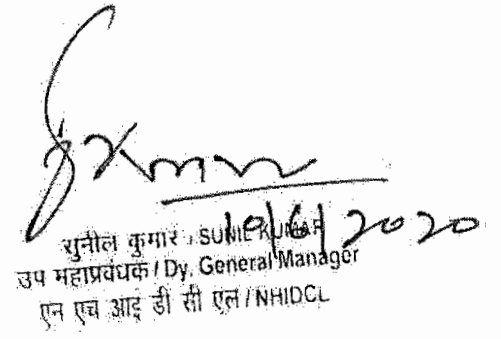 SKumar
10/6/2020
सुनील कुमार / SUNIL KUMAR
उप महाप्रबंधक / Dy. General Manager
एन एच आई डी सी एल / NHIDCL